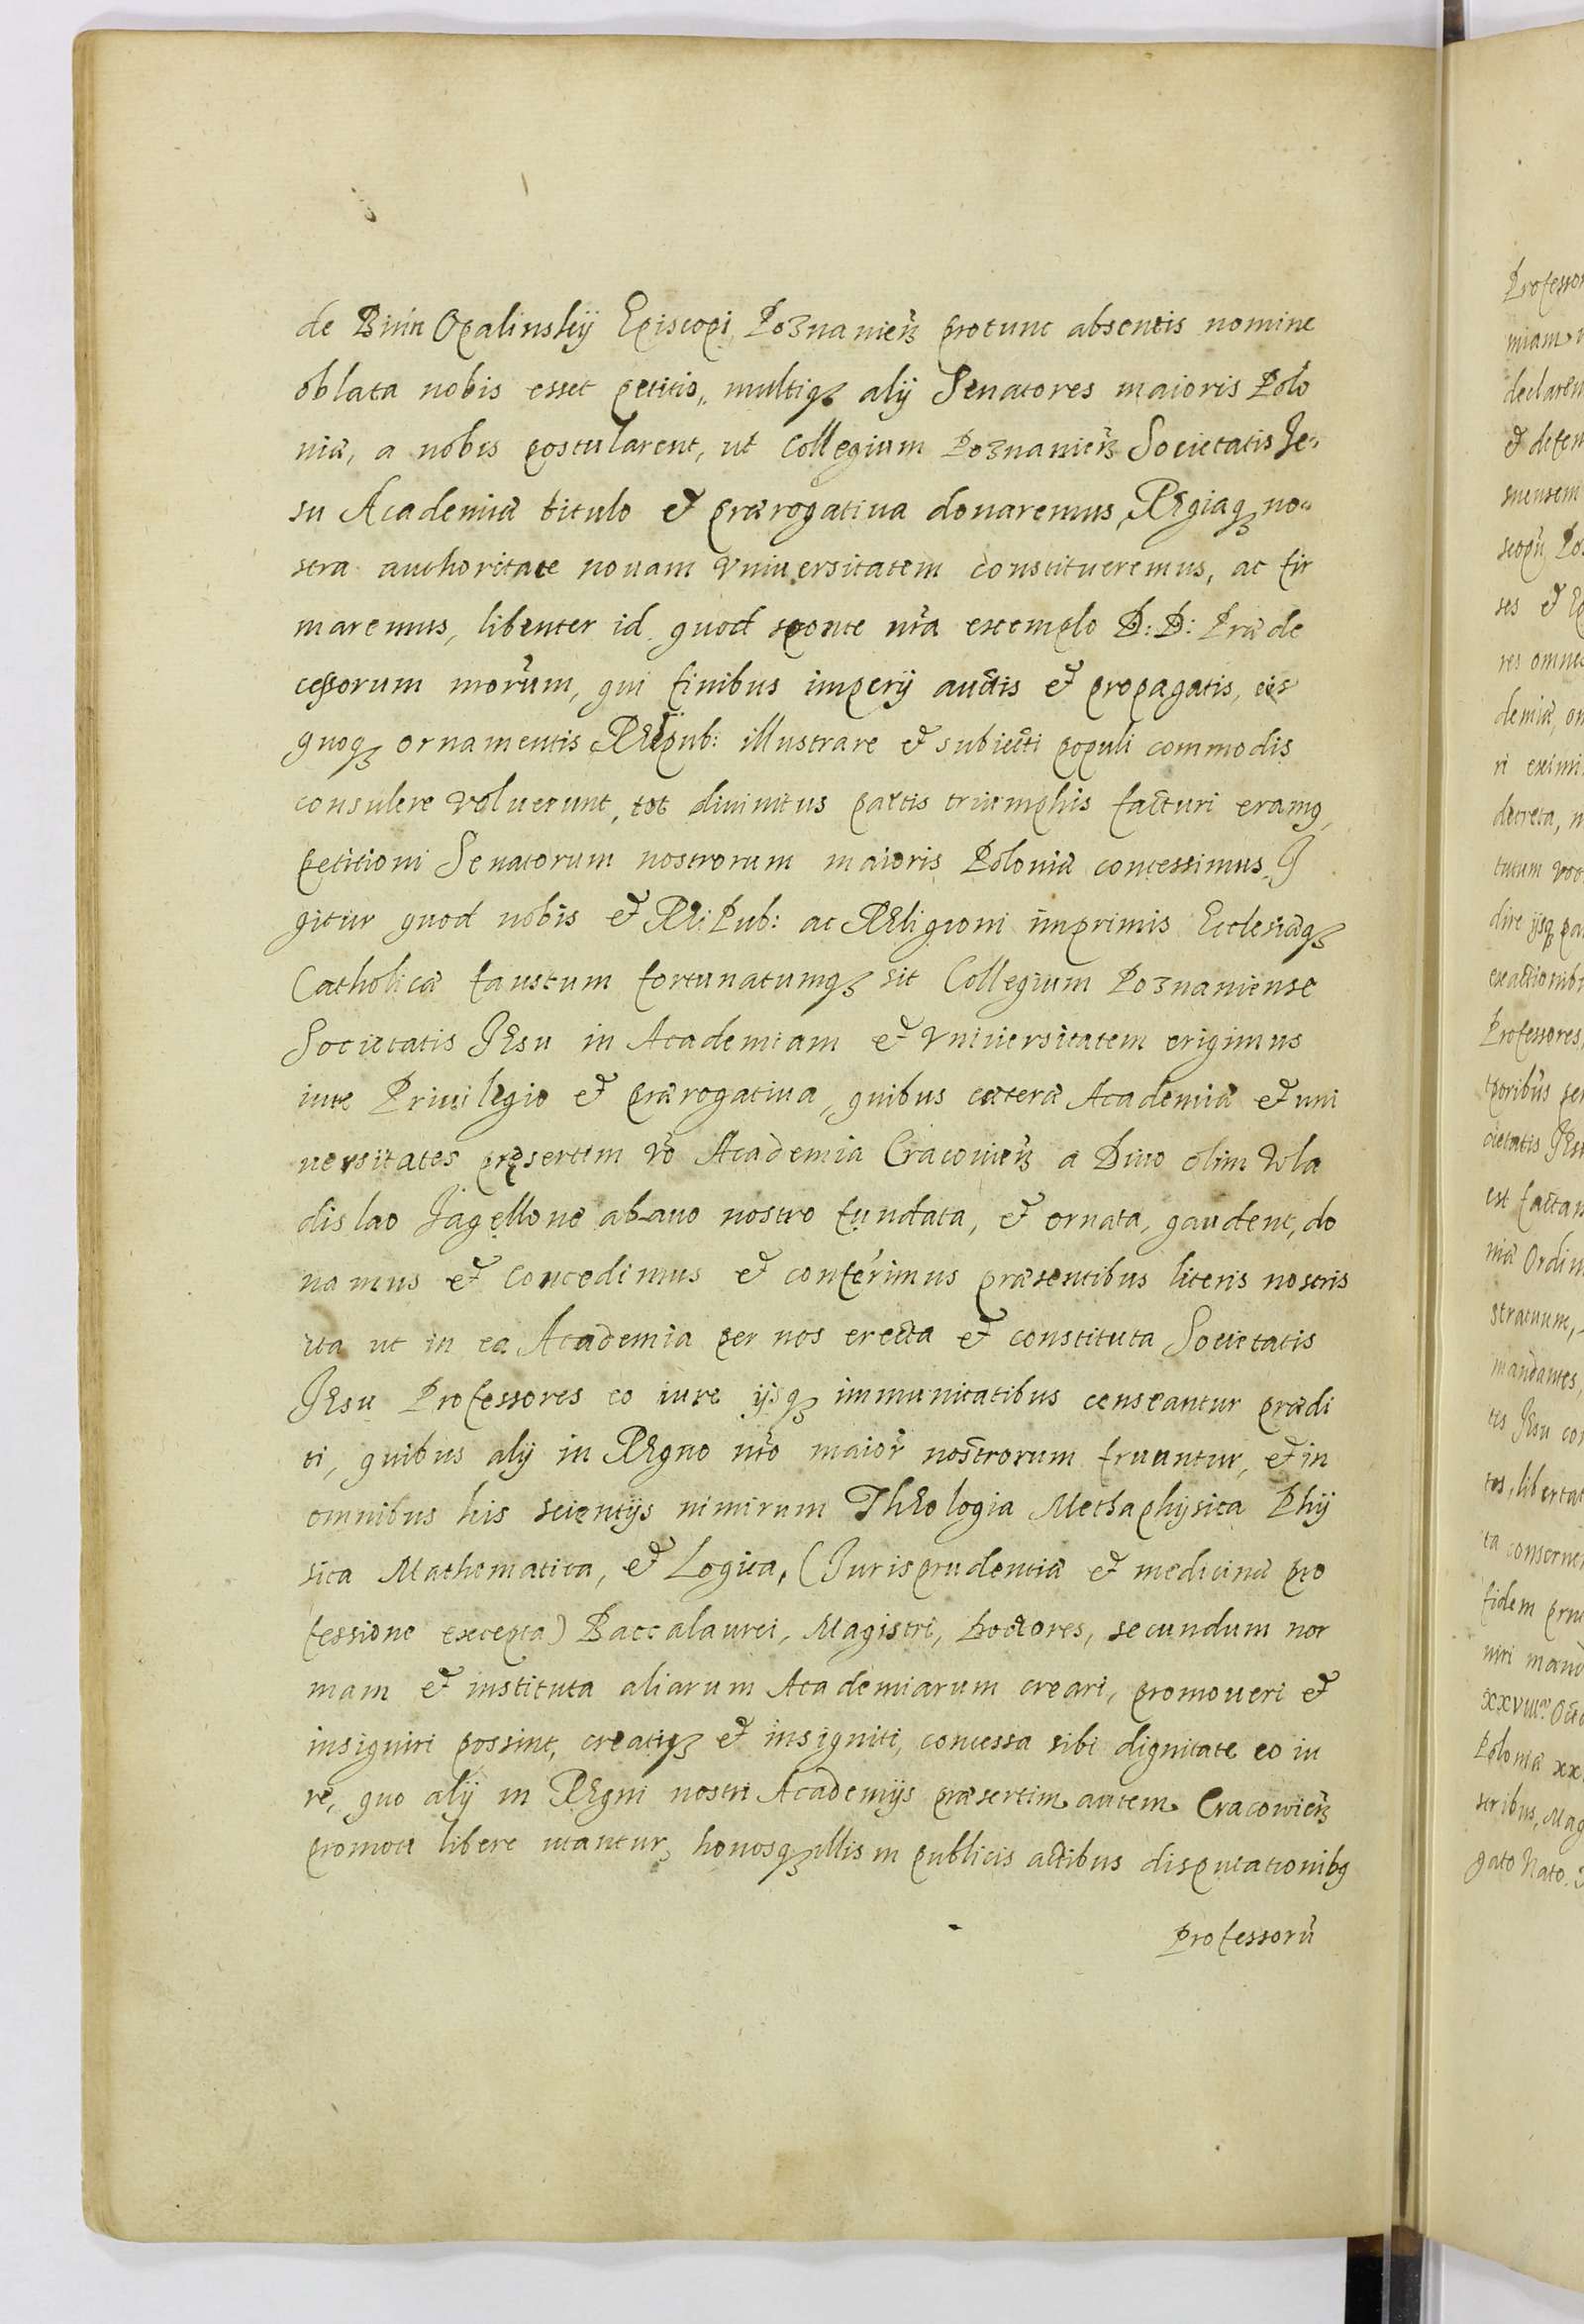 de Bnin Opalinskij Episcopi, Poznanieñ protunc absentis nomine
oblata nobis esset petitio, multiqꝫ alij Senatores maioris Polo
niæ, a nobis postularent, ut Collegium Poznanieñ Societatis Je-
su Academiæ titulo et prærogatiua donaremus, Regiaqꝫ no-
stra authoritate nouam Vniuersitatem constitueremus, ac fir
maremus, libenter id quod sponte nr̃a exemplo D: D: Præde
cessorum nrõrum, qui finibus imperij auctis et propagatis, eis
quoqꝫ ornamentis Reipub: illustrare et subiecti populi commodis
consulere voluerunt, tot diuinitus partis triumphis facturi eramꝰ,
petitioni Senatorum nostrorum maioris Poloniæ concessimus. I
gitur quod nobis et Rei Pub: ac Religioni imprimis Ecclesiæqꝫ
Catholicæ faustum fortunatumqꝫ sit Collegium Poznaniense
Societatis Jesu in Academiam et Vniuersitatem erigimus
iure Priuilegio et prærogatiua, quibus cæteræ Academiæ et uni
uersitates præsertim vo Academia Cracouieñ a Diuo olim Vla
dislao Jagellone ab-auo nostro fundata, et ornata, gaudent, do
namus et concedimus et conferimus præsentibus literis nostris
ita ut in ea Academia per nos erecta et constituta Societatis
Jesu Professores eo iure ijsqꝫ immunitatibus censeantur prædi
ti, quibus alij in Regno nr̃o maior̃ nostrorum fruuntur, et in
omnibus his scientijs nimirum Theologia Methaphysica Phij
sica Mathematica, et Logica, (Jurisprudentiæ et medicinæ pro
fessione excepta) Baccalaurei, Magistri, Doctores, secundum nor
mam et instituta aliarum Academiarum creari, promoueri et
insigniri possint, creatiqꝫ et insigniti, concessa sibi dignitate eo iu
re, quo alij in Regni nostri Academijs præsertim autem Cracowieñ
promoti libere utantur, honosqꝫ illis in publicis actibus disputationibꝰ
Professorũ